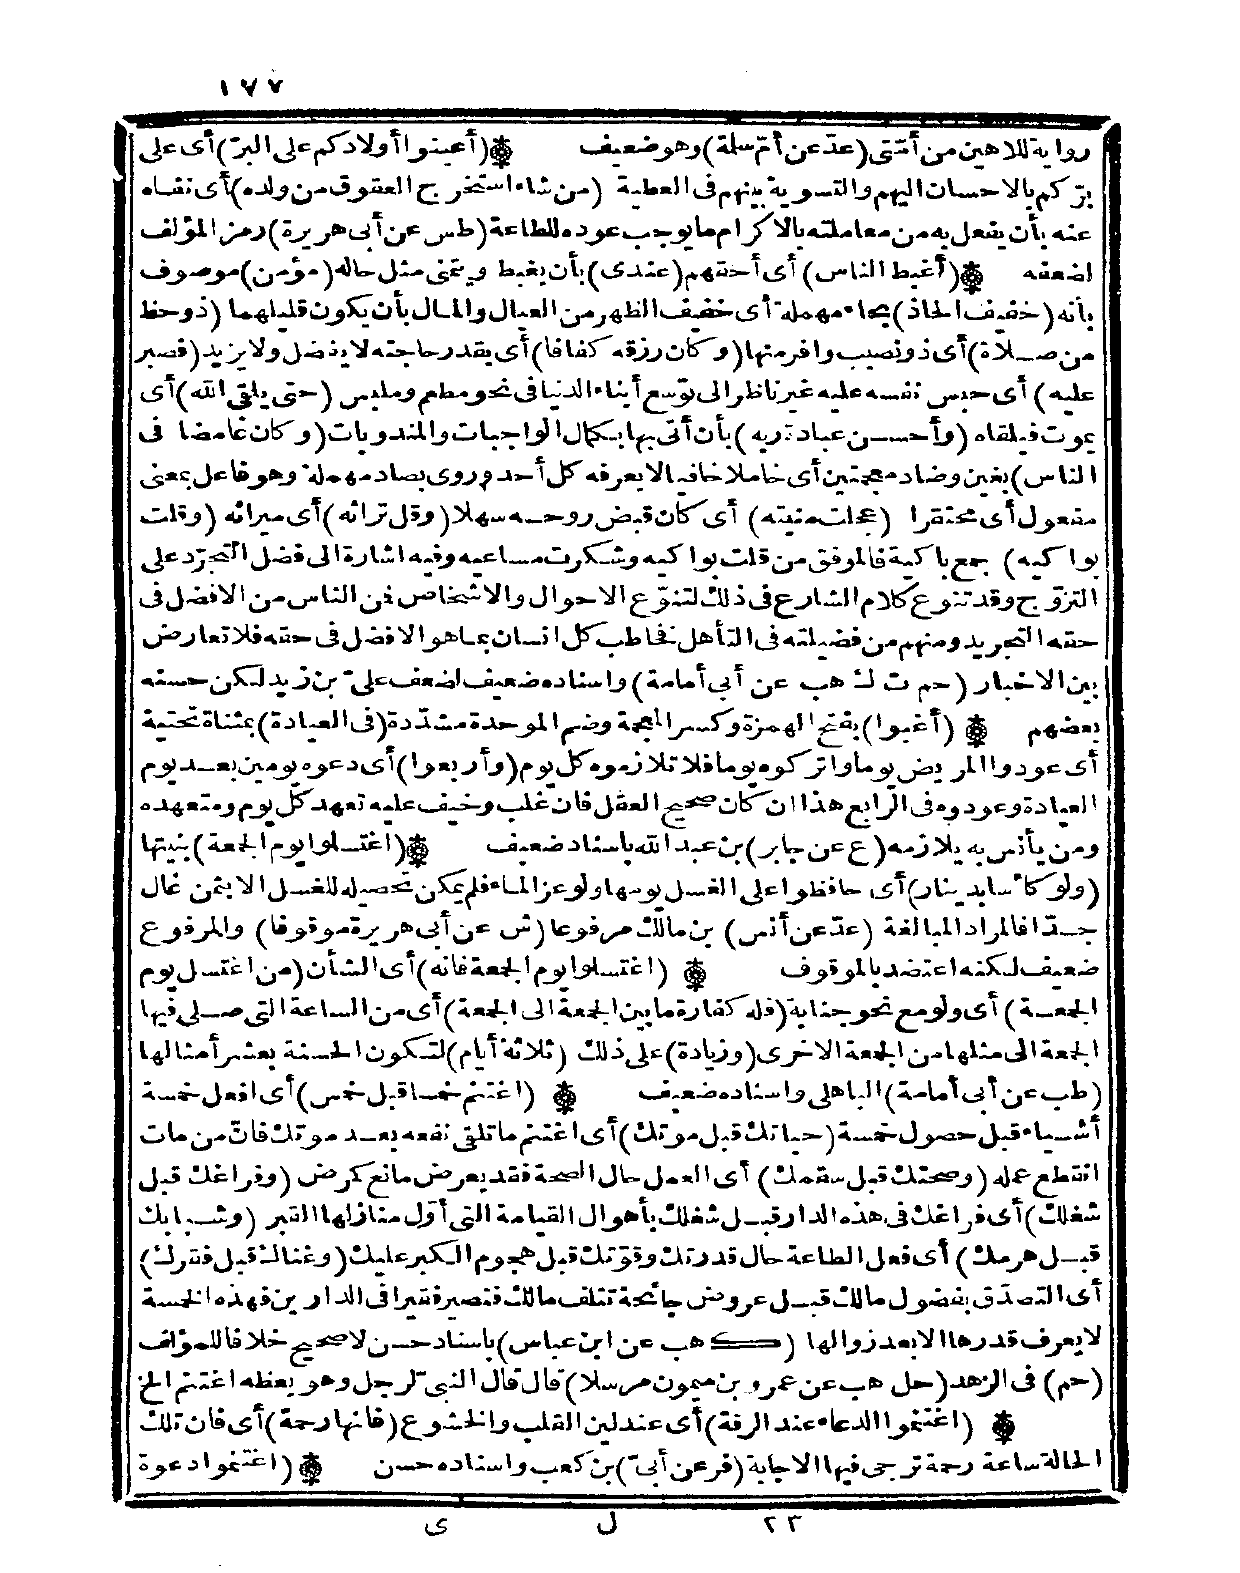 ١٧٧
رواية للاهين من أمتى (عد عن أم سلة) وهو ضعيف (أعينوا أولادكم على البر) أى على
بركم بالاحسان اليهم والتسوية بينهم فى العطية (من شاء استخرج العقوق من ولده) أى نفاه
عنه بأن يفعل به من معاملته بالاكرام ما يوجب عوده للطاعة (طس عن أبى هريرة) رمز المؤلف
لضعفه (أغبط الناس) أى أحقهم (عندى) بأن يغبط ويتمنى مثل حاله (مؤمن) موصوف
بأنه (خفيف الحاذ) بحاء مهملة أى خفيف الظهر من العيال والمال بأن يكون قليلهما (ذو حظ
من صلاة) أى ذو نصيب وافر منها (وكان رزقه كفافا) أى بقدر حاجته لا يفضل ولا يزيد (فصبر
عليه) أى حبس نفسه عليه غير ناظر الى توسع أبناء الدنيا فى نحو مطعم وملبس (حتى يلقى الله) أى
يموت فيلقاه (وأحسن عبادة ربه) بأن أتى بها بكمال الواجبات والمندوبات (وكان غامضا فى
الناس) بغين وضاد معجمتين أى خاملا خافيا لا يعرفه كل أحد وروى بصاد مهملة وهو فاعل بمعنى
مفعول أى محتقرا (عجلت منيته) أى كان قبض روحه سهلا (وقل تراثه) أى ميراثه (وقلت
بواكيه) جمع باكية فالموفق من قلت بواكيه وشكرت مساعيه وفيه اشارة الى فضل التجرد على
التزوج وقد تنوع كلام الشارع فى ذلك لتنوع الاحوال والاشخاص فمن الناس من الافضل فى
حقه التجريد ومنهم من فضيلته فى التأهل فخاطب كل انسان بما هو الافضل فى حقه فلا تعارض
بين الاخبار (حم ت ك هب عن أبى أمامة) واسناده ضعيف لضعف على بن زيد لكن حسنه
بعضهم (أغبوا) بفتح الهمزة وكسر المعجمة وضم الموحدة مشددة (فى العيادة) بمثناة تحتية
أى عودوا المريض يوما واتركوه يوما فلا تلازموه كل يوم (وأربعوا) أى دعوه يومين بعد يوم
العيادة وعودوه فى الرابع هذا ان كان صحيح العقل فان غلب وخيف عليه تعهد كل يوم ومتعهده
ومن يأنس به يلازمه (ع عن جابر) بن عبد الله باسناد ضعيف (اغتسلوا يوم الجمعة) بنيتها
(ولو كأسا بدينار) أى حافظوا على الغسل يومها ولو عز الماء فلم يمكن تحصيله للغسل الا بثمن غال
جدا فالمراد المبالغة (عد عن أنس) بن مالك مرفوعا (ش عن أبى هريرة موقوفا) والمرفوع
ضعيف لكنه اعتضد بالموقوف (اغتسلوا يوم الجمعة فانه) أى الشأن (من اغتسل يوم
الجمعة) أى ولو مع نحو جنابة (فله كفارة ما بين الجمعة الى الجمعة) أى من الساعة التى صلى فيها
الجمعة الى مثلها من الجمعة الاخرى (وزيادة) على ذلك (ثلاثة أيام) لتكون الحسنة بعشر أمثالها
(طب عن أبى أمامة) الباهلى واسناده ضعيف (اغتنم خمسا قبل خمس) أى افعل خمسة
أشياء قبل حصول خمسة (حياتك قبل موتك) أى اغتنم ما تلقى نفعه بعد موتك فان من مات
انقطع عمله (وصحتك قبل سقمك) أى العمل حال الصحة فقد يعرض مانع كمرض (وفراغك قبل
شغلك) أى فراغك فى هذه الدار قبل شغلك بأهوال القيامة التى أول منازلها القبر (وشبابك
قبل هرمك) أى فعل الطاعة حال قدرتك وقوتك قبل هجوم الكبر عليك (وغناك قبل فقرك)
أى التصدق بفضول مالك قبل عروض جائحة تتلف مالك فتصير فقيرا فى الدارين فهذه الخمسة
لا يعرف قدرها الا بعد زوالها (ك هب عن ابن عباس) باسناد حسن لا صحيح خلافا للمؤلف
(حم) فى الزهد (حل هب عن عمرو بن ميمون مرسلا) قال قال النبى لرجل وهو يعظه اغتنم الخ
(اغتنموا الدعاء عند الرقة) أى عند لين القلب والخشوع (فانها رحمة) أى فان تلك
الحالة ساعة رحمة ترجى فيها الاجابة (فر عن أبى) بن كعب واسناده حسن (اغتنموا دعوة
٢٣ ل ى